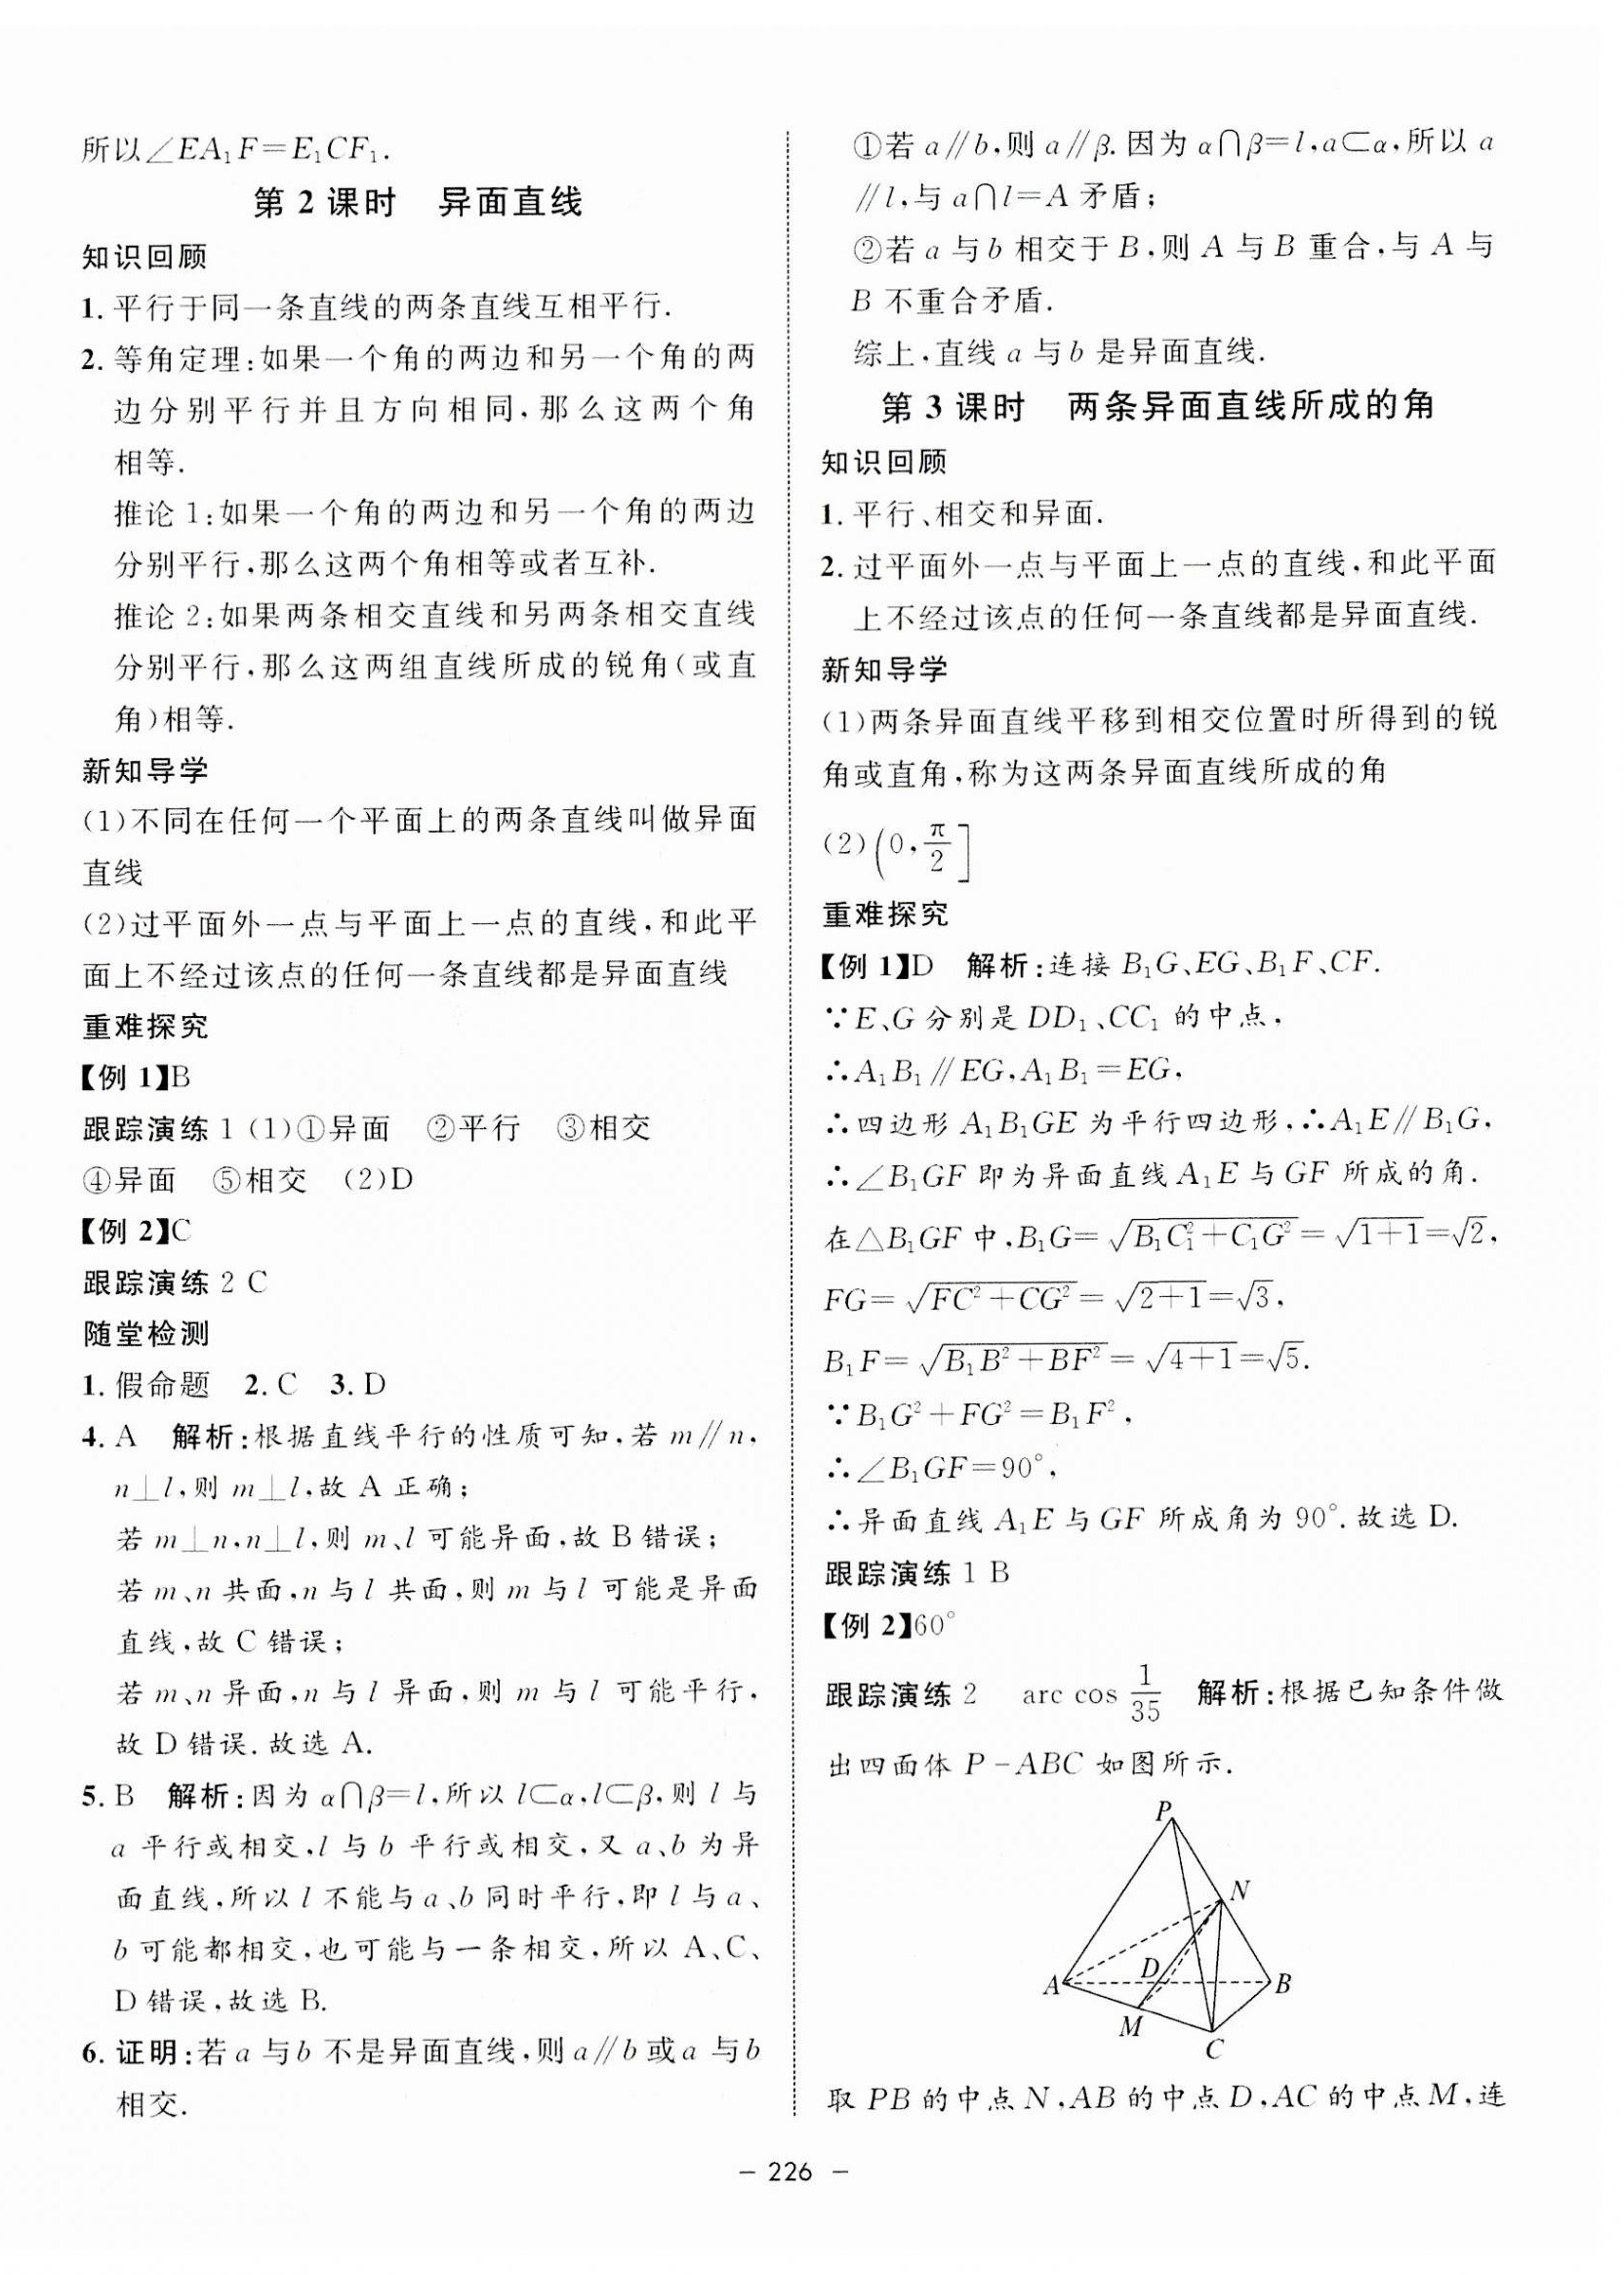 所以∠EA₁F=E₁CF₁.
第 2 课时　异面直线
知识回顾
1. 平行于同一条直线的两条直线互相平行.
2. 等角定理:如果一个角的两边和另一个角的两
边分别平行并且方向相同,那么这两个角
相等.
推论 1:如果一个角的两边和另一个角的两边
分别平行,那么这两个角相等或者互补.
推论 2:如果两条相交直线和另两条相交直线
分别平行,那么这两组直线所成的锐角(或直
角)相等.
新知导学
(1)不同在任何一个平面上的两条直线叫做异面
直线
(2)过平面外一点与平面上一点的直线,和此平
面上不经过该点的任何一条直线都是异面直线
重难探究
【例 1】B
跟踪演练 1 (1)①异面　②平行　③相交
④异面　⑤相交　(2)D
【例 2】C
跟踪演练 2 C
随堂检测
1. 假命题　2. C　3. D
4. A　解析:根据直线平行的性质可知,若 m∥n,
n⊥l,则 m⊥l,故 A 正确;
若 m⊥n,n⊥l,则 m、l 可能异面,故 B 错误;
若 m、n 共面,n 与 l 共面,则 m 与 l 可能是异面
直线,故 C 错误;
若 m、n 异面,n 与 l 异面,则 m 与 l 可能平行,
故 D 错误.故选 A.
5. B　解析:因为 α∩β=l,所以 l⊂α,l⊂β,则 l 与
a 平行或相交,l 与 b 平行或相交,又 a、b 为异
面直线,所以 l 不能与 a、b 同时平行,即 l 与 a、
b 可能都相交,也可能与一条相交,所以 A、C、
D 错误,故选 B.
6. 证明:若 a 与 b 不是异面直线,则 a∥b 或 a 与 b
相交.
①若 a∥b,则 a∥β.因为 α∩β=l,a⊂α,所以 a
∥l,与 a∩l=A 矛盾;
②若 a 与 b 相交于 B,则 A 与 B 重合,与 A 与
B 不重合矛盾.
综上,直线 a 与 b 是异面直线.
第 3 课时　两条异面直线所成的角
知识回顾
1. 平行、相交和异面.
2. 过平面外一点与平面上一点的直线,和此平面
上不经过该点的任何一条直线都是异面直线.
新知导学
(1)两条异面直线平移到相交位置时所得到的锐
角或直角,称为这两条异面直线所成的角
(2)(0,π/2]
重难探究
【例 1】D　解析:连接 B₁G、EG、B₁F、CF.
∵E、G 分别是 DD₁、CC₁ 的中点,
∴A₁B₁∥EG,A₁B₁=EG,
∴四边形 A₁B₁GE 为平行四边形,∴A₁E∥B₁G,
∴∠B₁GF 即为异面直线 A₁E 与 GF 所成的角.
在△B₁GF 中,B₁G=√(B₁C₁²+C₁G²)=√(1+1)=√2,
FG=√(FC²+CG²)=√(2+1)=√3,
B₁F=√(B₁B²+BF²)=√(4+1)=√5.
∵B₁G²+FG²=B₁F²,
∴∠B₁GF=90°,
∴异面直线 A₁E 与 GF 所成角为 90°.故选 D.
跟踪演练 1 B
【例 2】60°
跟踪演练 2　arc cos 1/35　解析:根据已知条件做
出四面体 P-ABC 如图所示.
P
N
D
A
B
M
C
取 PB 的中点 N,AB 的中点 D,AC 的中点 M,连
- 226 -